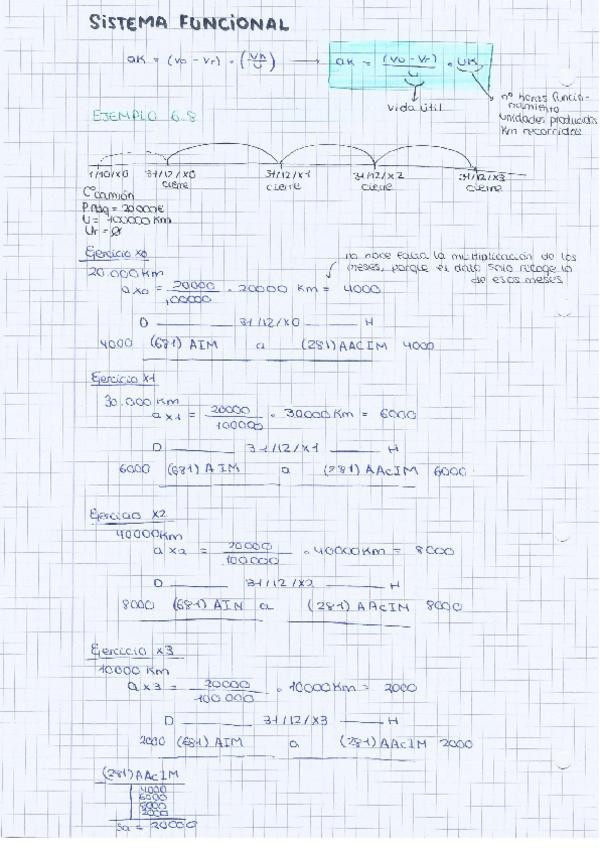 SISTEMA FUNCIONAL
aK = (Vo - Vr) · (UK/U) → aK = (Vo - Vr)/U · UK
vida útil
nº horas funcio-
namiento
unidades producidas
Km recorridos
EJEMPLO 6.8
1/10/X0 31/12/X0 31/12/X1 31/12/X2 31/12/X3
cierre cierre cierre cierre
Camión
P adq = 20000€
U = 100000 Km
Vr = Ø
Ejercicio X0
no hace falta la multiplicación de los
meses, porque el dato solo recoge lo
de esos meses
20.000 Km
a x0 = 20000/100000 · 20000 Km = 4000
D 31/12/X0 H
4000 (681) AIM a (281) AAcIM 4000
Ejercicio X1
30.000 Km
a x1 = 20000/100000 · 30000 Km = 6000
D 31/12/X1 H
6000 (681) AIM a (281) AAcIM 6000
Ejercicio X2
40000 Km
a x2 = 20000/100000 · 40000 Km = 8000
D 31/12/X2 H
8000 (681) AIM a (281) AAcIM 8000
Ejercicio X3
10000 Km
a x3 = 20000/100.000 · 10000 Km = 2000
D 31/12/X3 H
2000 (681) AIM a (281) AAcIM 2000
(281) AAcIM
4000
6000
8000
2000
Sa = 20000